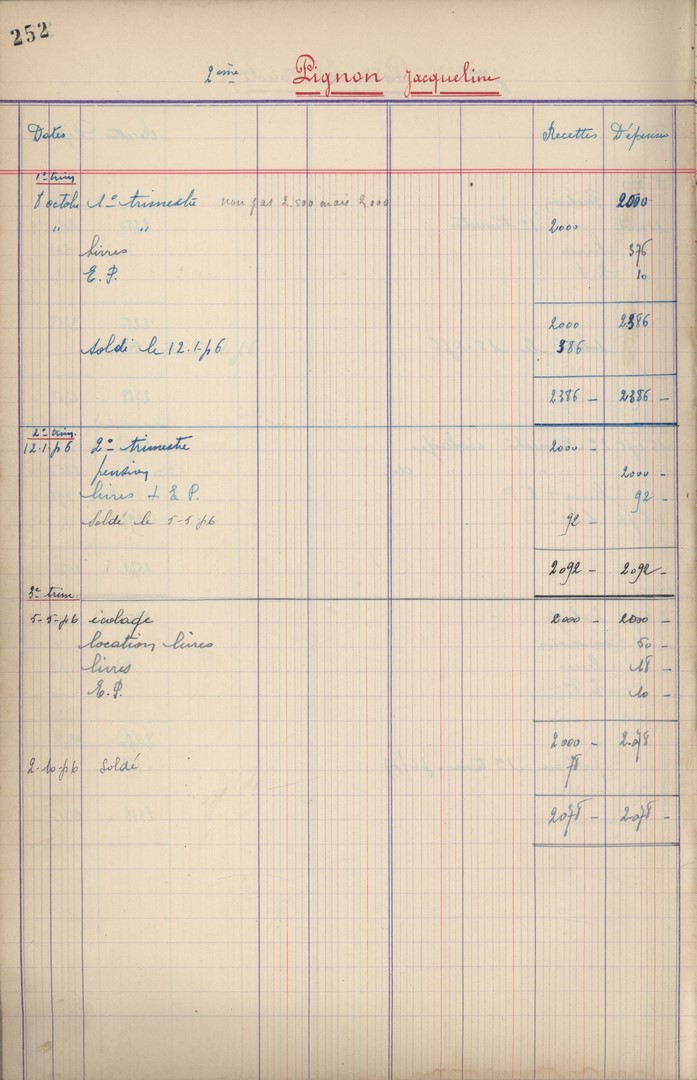 252
2ème Pignon Jacqueline
Dates Recettes Dépenses
1º trim
8 octobre 1º trimestre non pas 2.500 mais 2000 2000
" " 2000
livres 376
E. P. 10
2000 2386
soldé le 12.1.56 386
2386 - 2386 -
2º trim.
12.1.56 2º trimestre 2000 -
pension 2000 -
livres + E P. 92 -
Soldé le 5-5-56 92 -
2092 - 2092 -
3º trim.
5-5-56 écolage 2000 - 2000 -
location livres 50 -
livres 18 -
E. P. 10 -
2000 - 2078
2-10-56 Soldé 78
2078 - 2078 -